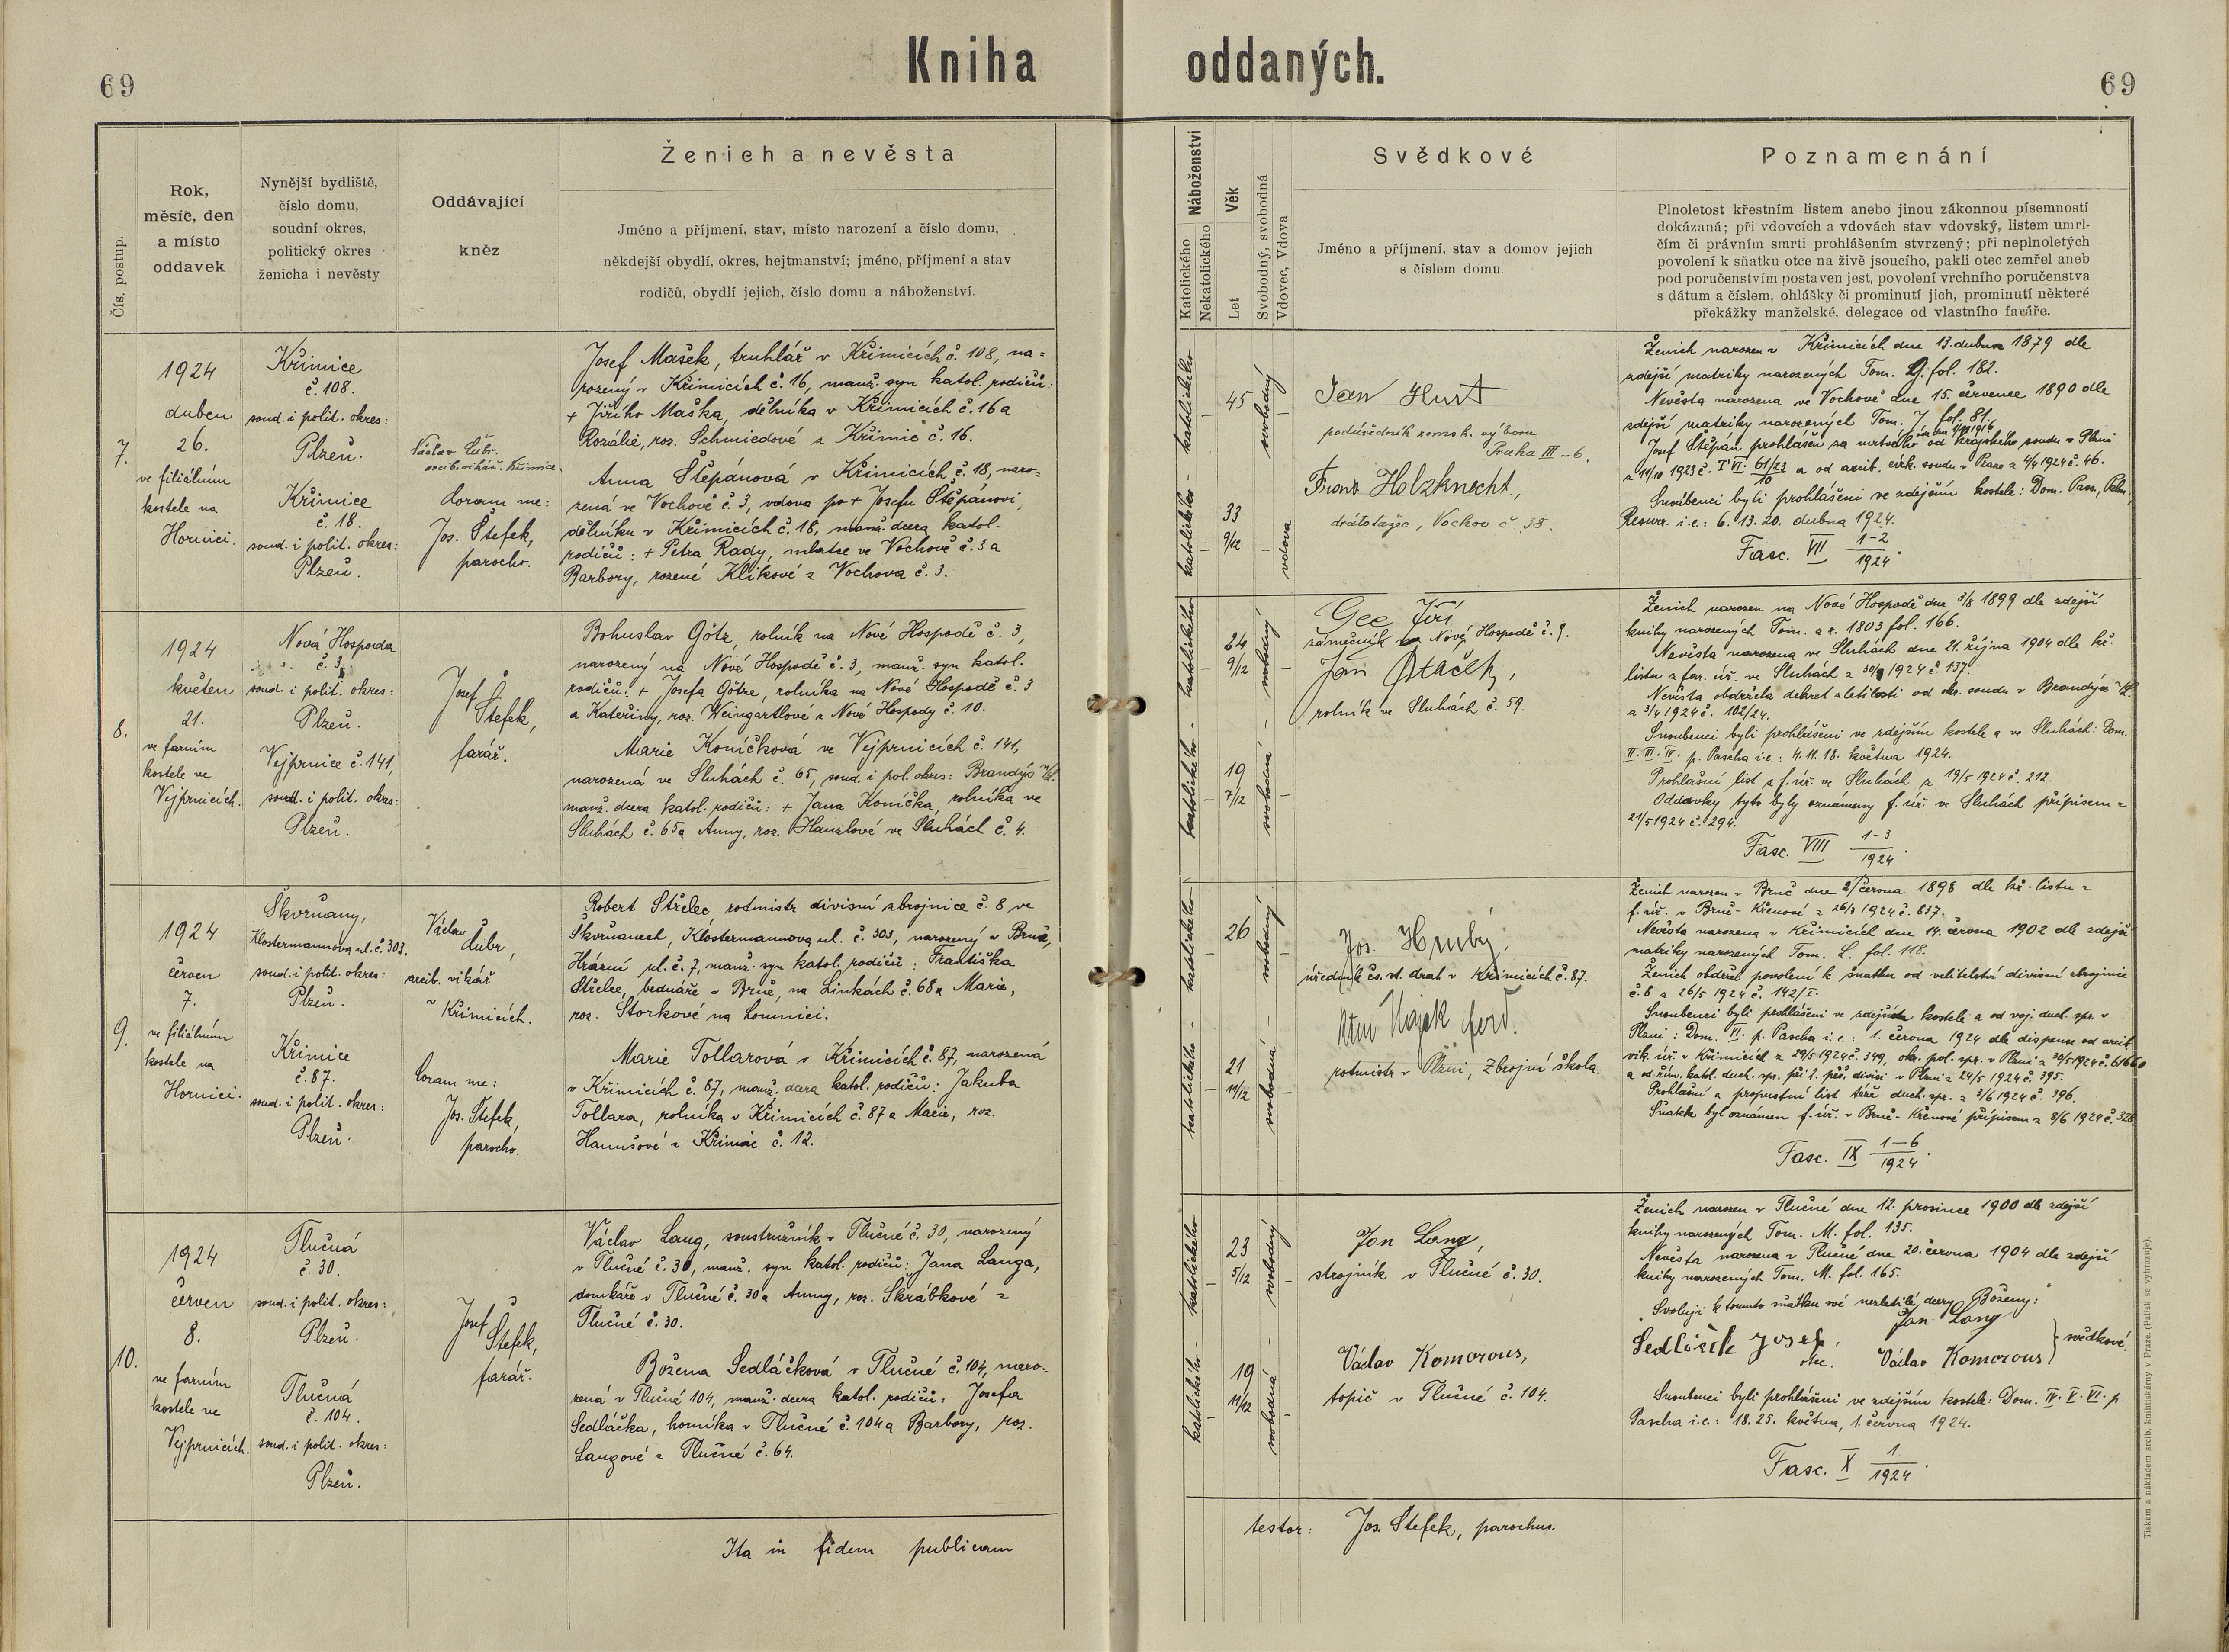 69
Kniha oddaných.
69
Čís. postup.
Rok,
měsíc, den
a místo
oddavek
Nynější bydliště,
číslo domu,
soudní okres,
politický okres
ženicha i nevěsty
Oddávající
kněz
Ženich a nevěsta
Jméno a příjmení, stav, místo narození a číslo domu,
někdejší obydlí, okres, hejtmanství; jméno, příjmení a stav
rodičů, obydlí jejich, číslo domu a náboženství.
Náboženství
Katolického
Nekatolického
Věk
Let
Svobodný, svobodná
Vdovec, Vdova
Svědkové
Jméno a příjmení, stav a domov jejich
s číslem domu.
Poznamenání
Plnoletost křestním listem anebo jinou zákonnou písemností
dokázaná; při vdovcích a vdovách stav vdovský, listem umrl-
čím či právním smrti prohlášením stvrzený; při neplnoletých
povolení k sňatku otce na živě jsoucího, pakli otec zemřel aneb
pod poručenstvím postaven jest, povolení vrchního poručenstva
s dátum a číslem, ohlášky či prominutí jich, prominutí některé
překážky manželské, delegace od vlastního faráře.
7.
1924
duben
26.
ve filiálním
kostele na
Hornici.
Křimice
č. 108.
soud. i polit. okres:
Plzeň.
Křimice
č. 18.
soud. i polit. okres:
Plzeň.
Václav Čubr.
arcib. vikář. Křimice.
Coram me:
Jos. Štefek,
parocho.
Josef Mašek, truhlář v Křimicích č. 108, na=
rozený v Křimicích č. 16, manž. syn katol. rodičů:
+ Jiřího Maška, dělníka v Křimicích č. 16 a
Rozálie, roz. Schmiedové z Křimic č. 16.
Anna Štěpánová v Křimicích č. 18, naro=
zená ve Vochově č. 3, vdova po + Josefu Štěpánovi,
dělníku v Křimicích č. 18, manž. dcera katol.
rodičů: + Petra Rady, mlatce ve Vochově č. 3 a
Barbory, rozené Klikové z Vochova č. 3.
katolického - katolického
45
33
9/12
svobodný
vdova
Jan Hust
podúředník zemsk. výboru
Praha III - 6.
Franz Holzknecht,
drátotažec, Vochov č. 38.
Ženich narozen v Křimicích dne 13. dubna 1879 dle
zdejší matriky narozených Tom. fol. 182.
Nevěsta narozena ve Vochově dne 15. července 1890 dle
zdejší matriky narozených Tom. J. fol. 81.
Josef Štěpán prohlášen za mrtvého od krajského soudu v Plzni
z 11/10 1923 č. T VI. 61/23 a od arcib. cirk. soudu v Praze z 4/4 1924 č. 46.
10
Snoubenci byli prohlášeni ve zdejším kostele: Dom. Pass., Palm.,
Resurr. i.e.: 6. 13. 20. dubna 1924.
Fasc. VII 1-2/1924.
8.
1924
květen
21.
ve farním
kostele ve
Vejprnicích.
Nová Hospoda
č. 3,
soud. i polit. okres:
Plzeň.
Vejprnice č. 141,
soud. i polit. okres:
Plzeň.
Josef
Štefek,
farář.
Bohuslav Götz, rolník na Nové Hospodě č. 3,
narozený na Nové Hospodě č. 3, manž. syn katol.
rodičů: + Josefa Götze, rolníka na Nové Hospodě č. 3
a Kateřiny, roz. Weingärtlové z Nové Hospody č. 10.
Marie Koníčková ve Vejprnicích č. 141,
narozená ve Sluhách č. 65, soud. i pol. okres: Brandýs n/L.
manž. dcera katol. rodičů: + Jana Koníčka, rolníka ve
Sluhách č. 65 a Anny, roz. Hanzlové ve Sluhách č. 4.
katolického - katolického
24
9/12
19
7/12
svobodný
svobodná
Gee Jiří
zámečník Nové Hospodě č. 9.
Jan Ptáček,
rolník ve Sluhách č. 59.
Ženich narozen na Nové Hospodě dne 3/8 1899 dle zdejší
knihy narozených Tom. a r. 1803 fol. 166.
Nevěsta narozena ve Sluhách dne 21. října 1904 dle kř.
listu z far. úř. ve Sluhách z 30/4 1924 č. 137.
Nevěsta obdržela dekret zletilosti od okr. soudu v Brandýse n/L.
z 3/4 1924 č. 102/24.
Snoubenci byli prohlášeni ve zdejším kostele a ve Sluhách: Dom.
II. III. IV. p. Pascha i.e.: 4. 11. 18. května 1924.
Prohlašní list z f. úř. ve Sluhách z 19/5 1924 č. 212.
Oddavky tyto byly oznámeny f. úř. ve Sluhách přípisem z
21/5 1924 č. 294.
Fasc. VIII 1-3/1924.
9.
1924
červen
7.
ve filiálním
kostele na
Hornici.
Škvrňany,
Klostermannova ul. č. 303.
soud. i polit. okres:
Plzeň.
Křimice
č. 87.
soud. i polit. okres:
Plzeň.
Václav
Čubr,
arcib. vikář
v Křimicích.
Coram me:
Jos. Štefek,
parocho.
Robert Střelec, rotmistr divisní zbrojnice č. 8 ve
Škvrňanech, Klostermannova ul. č. 303, narozený v Brně,
Hrázní ul. č. 7, manž. syn katol. rodičů: Františka
Střelce, bednáře v Brně, na Linkách č. 68 a Marie,
roz. Štorkové na Lomnici.
Marie Tollarová v Křimicích č. 87, narozená
v Křimicích č. 87, manž. dcera katol. rodičů: Jakuba
Tollara, rolníka v Křimicích č. 87 a Marie, roz.
Hanušové z Křimic č. 12.
katolického - katolického
26
21
11/12
svobodný
svobodná
Jos. Hrubý,
úředník čs. st. drah v Křimicích č. 87.
Hájek ferd.
rotmistr v Plzni, Zbrojní škola.
Ženich narozen v Brně dne 2/ června 1898 dle kř. listu z
f. úř. v Brně-Křenové z 26/3 1924 č. 837.
Nevěsta narozena v Křimicích dne 14. června 1902 dle zdejší
matriky narozených Tom. L. fol. 118.
Ženich obdržel povolení k sňatku od velitelství divisní zbrojnice
č. 8 z 26/5 1924 č. 142/I.
Snoubenci byli prohlášeni ve zdejším kostele a od voj. duch. spr. v
Plzni: Dom. VI. p. Pascha i.e.: 1. června 1924 dle dispense od arcib.
vik. úř. v Křimicích z 29/5 1924 č. 349, okr. pol. spr. v Plzni z 30/5 1924 č.
a od řím. katol. duch. spr. při 2. pěš. divisi v Plzni z 24/5 1924 č. 395.
Prohlašní a propustní list téže duch. spr. z 3/6 1924 č. 396.
Sňatek byl oznámen f. úř. v Brně-Křenové přípisem z 8/6 1924 č. 328.
Fasc. IX 1-6/1924.
10.
1924
červen
8.
ve farním
kostele ve
Vejprnicích.
Tlučná
č. 30.
soud. i polit. okres:
Plzeň.
Tlučná
č. 104.
soud. i polit. okres:
Plzeň.
Josef
Štefek,
farář.
Václav Lang, soustružník v Tlučné č. 30, narozený
v Tlučné č. 30, manž. syn katol. rodičů: Jana Langa,
domkáře v Tlučné č. 30 a Anny, roz. Škrábkové z
Tlučné č. 30.
Božena Sedláčková v Tlučné č. 104, naro-
zená v Tlučné 104, manž. dcera katol. rodičů: Josefa
Sedláčka, horníka v Tlučné č. 104 a Barbory, roz.
Langové z Tlučné č. 64.
katolického - katolického
23
5/12
19
11/12
svobodný
svobodná
Jan Lang,
strojník v Tlučné č. 30.
Václav Komorous,
topič v Tlučné č. 104.
Ženich narozen v Tlučné dne 12. prosince 1900 dle zdejší
knihy narozených Tom. M. fol. 135.
Nevěsta narozena v Tlučné dne 20. června 1904 dle zdejší
knihy narozených Tom. M. fol. 165.
"Svoluji k tomuto sňatku své nezletilé dcery Boženy:"
Jan Lang
Sedláček Josef, otec. Václav Komorous } svědkové.
Snoubenci byli prohlášeni ve zdejším kostele: Dom. IV. V. VI. p.
Pascha i.e.: 18. 25. května, 1. června 1924.
Fasc. X 1/1924.
Ita in fidem publicam
testor: Jos. Štefek, parochus.
Tiskem a nákladem arcib. knihtiskárny v Praze. (Patisk se vyhrazuje).